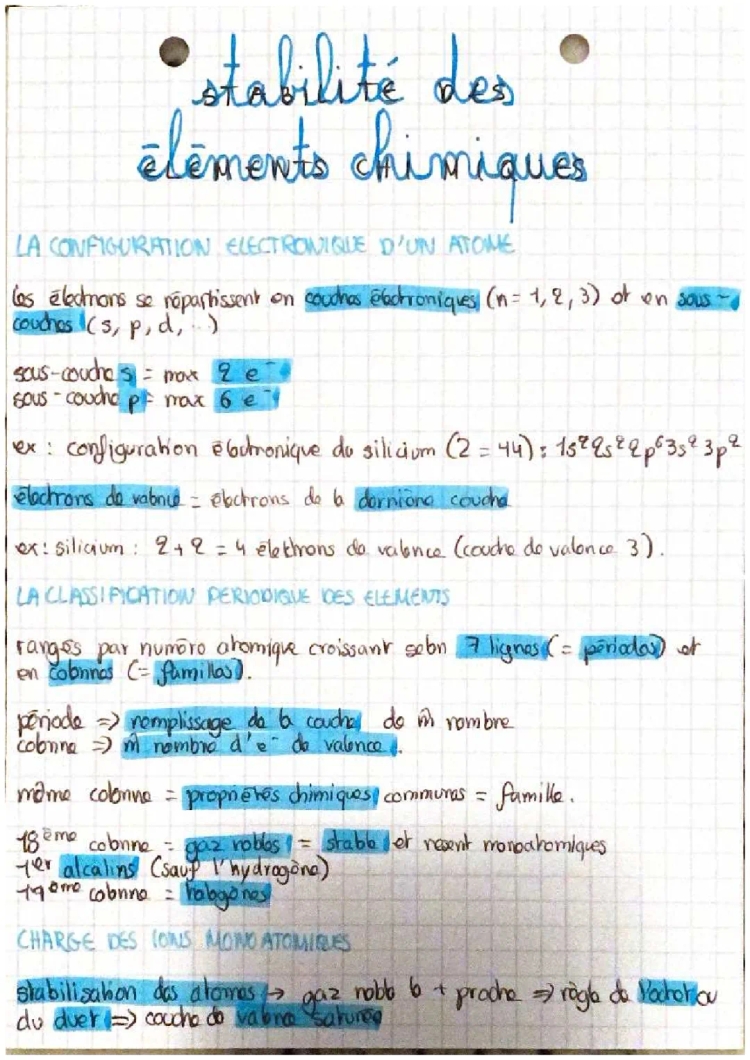 stabilité des
éléments chimiques
LA CONFIGURATION ELECTRONIQUE D'UN ATOME
les électrons se répartissent en couches électroniques (n = 1, 2, 3) et en sous-
couches (s, p, d, ...)
sous-couche s = max 2 e⁻
sous-couche p = max 6 e⁻
ex : configuration électronique du silicium (Z = 14) : 1s² 2s² 2p⁶ 3s² 3p²
électrons de valence = électrons de la dernière couche
ex : silicium : 2 + 2 = 4 électrons de valence (couche de valence 3).
LA CLASSIFICATION PERIODIQUE DES ELEMENTS
rangés par numéro atomique croissant selon 7 lignes (= périodes) et
en colonnes (= familles).
période => remplissage de la couche de m̂ nombre
colonne => m̂ nombre d'e⁻ de valence.
même colonne = propriétés chimiques communes = famille.
18ème colonne = gaz nobles = stable et restent monoatomiques
1er alcalins (sauf l'hydrogène)
17ème colonne = halogènes
CHARGE DES IONS MONOATOMIQUES
stabilisation des atomes → gaz noble le + proche => règle de l'octet ou
du duet => couche de valence saturée